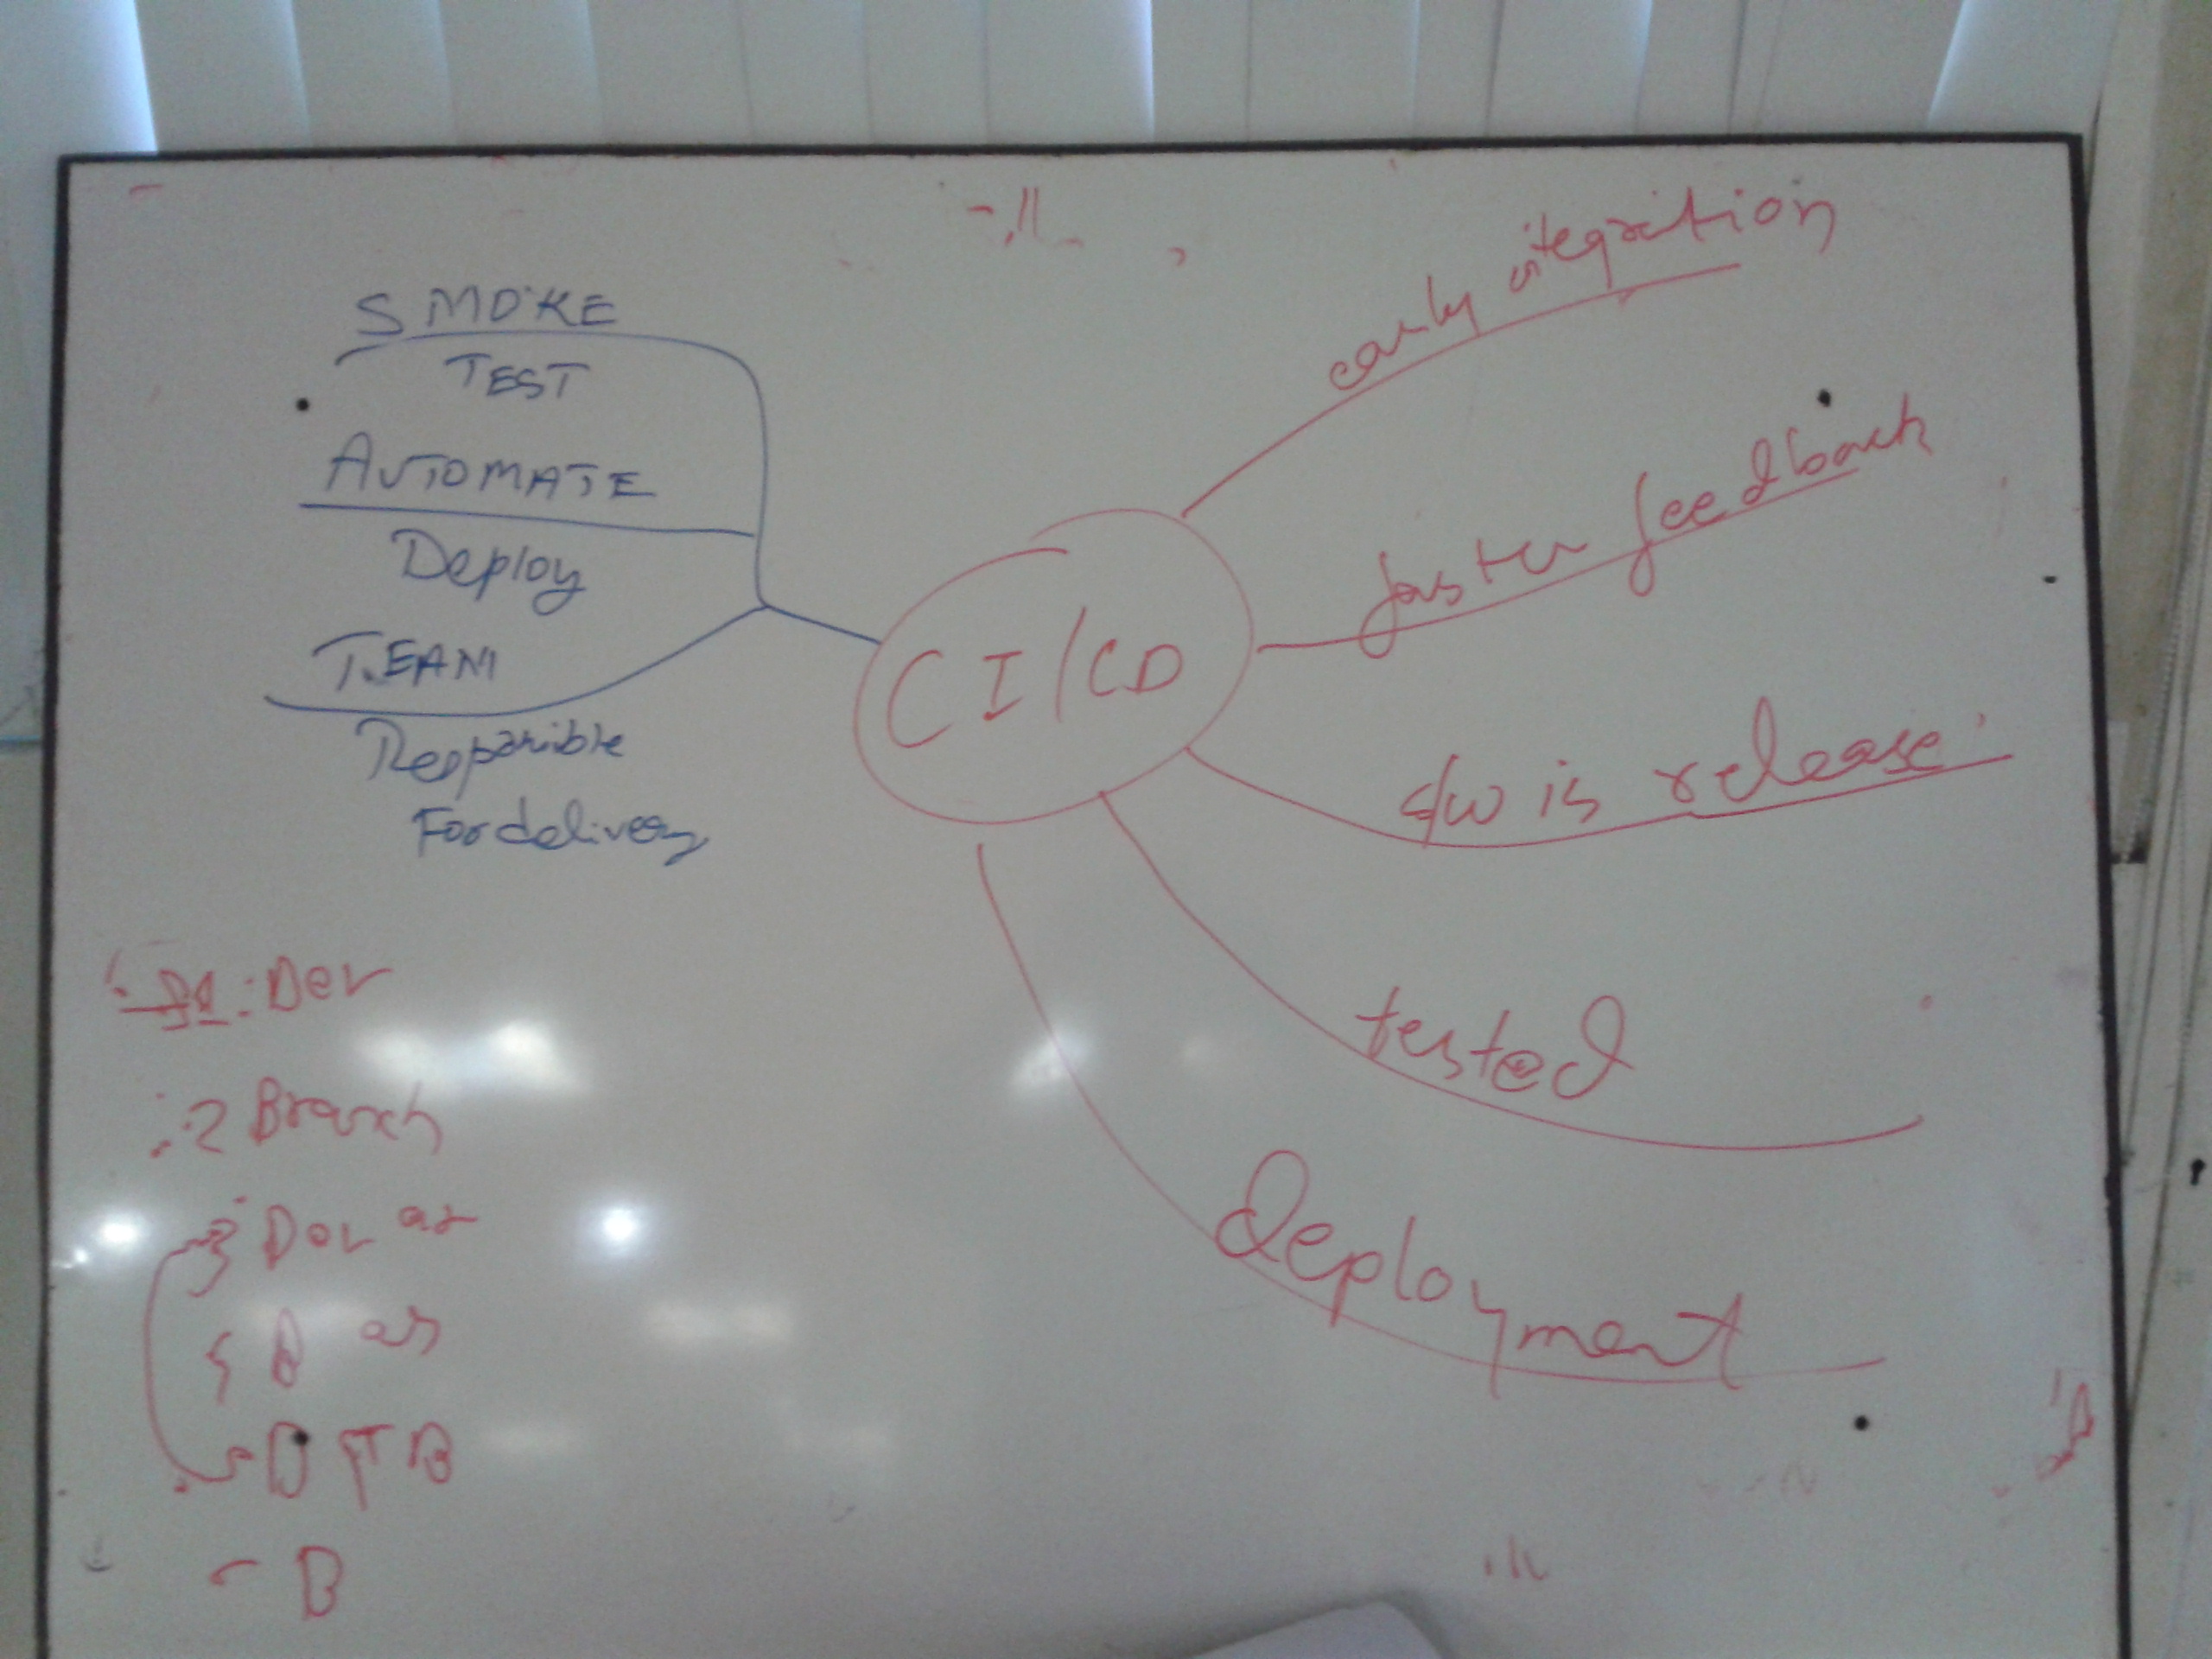 SMOKE
TEST
AUTOMATE
Deploy
TEAM
Responsible
For delivery
CI/CD
early integration
faster feedback
s/w is release
tested
deployment
Dev
2 Branch
3 Dev as
B